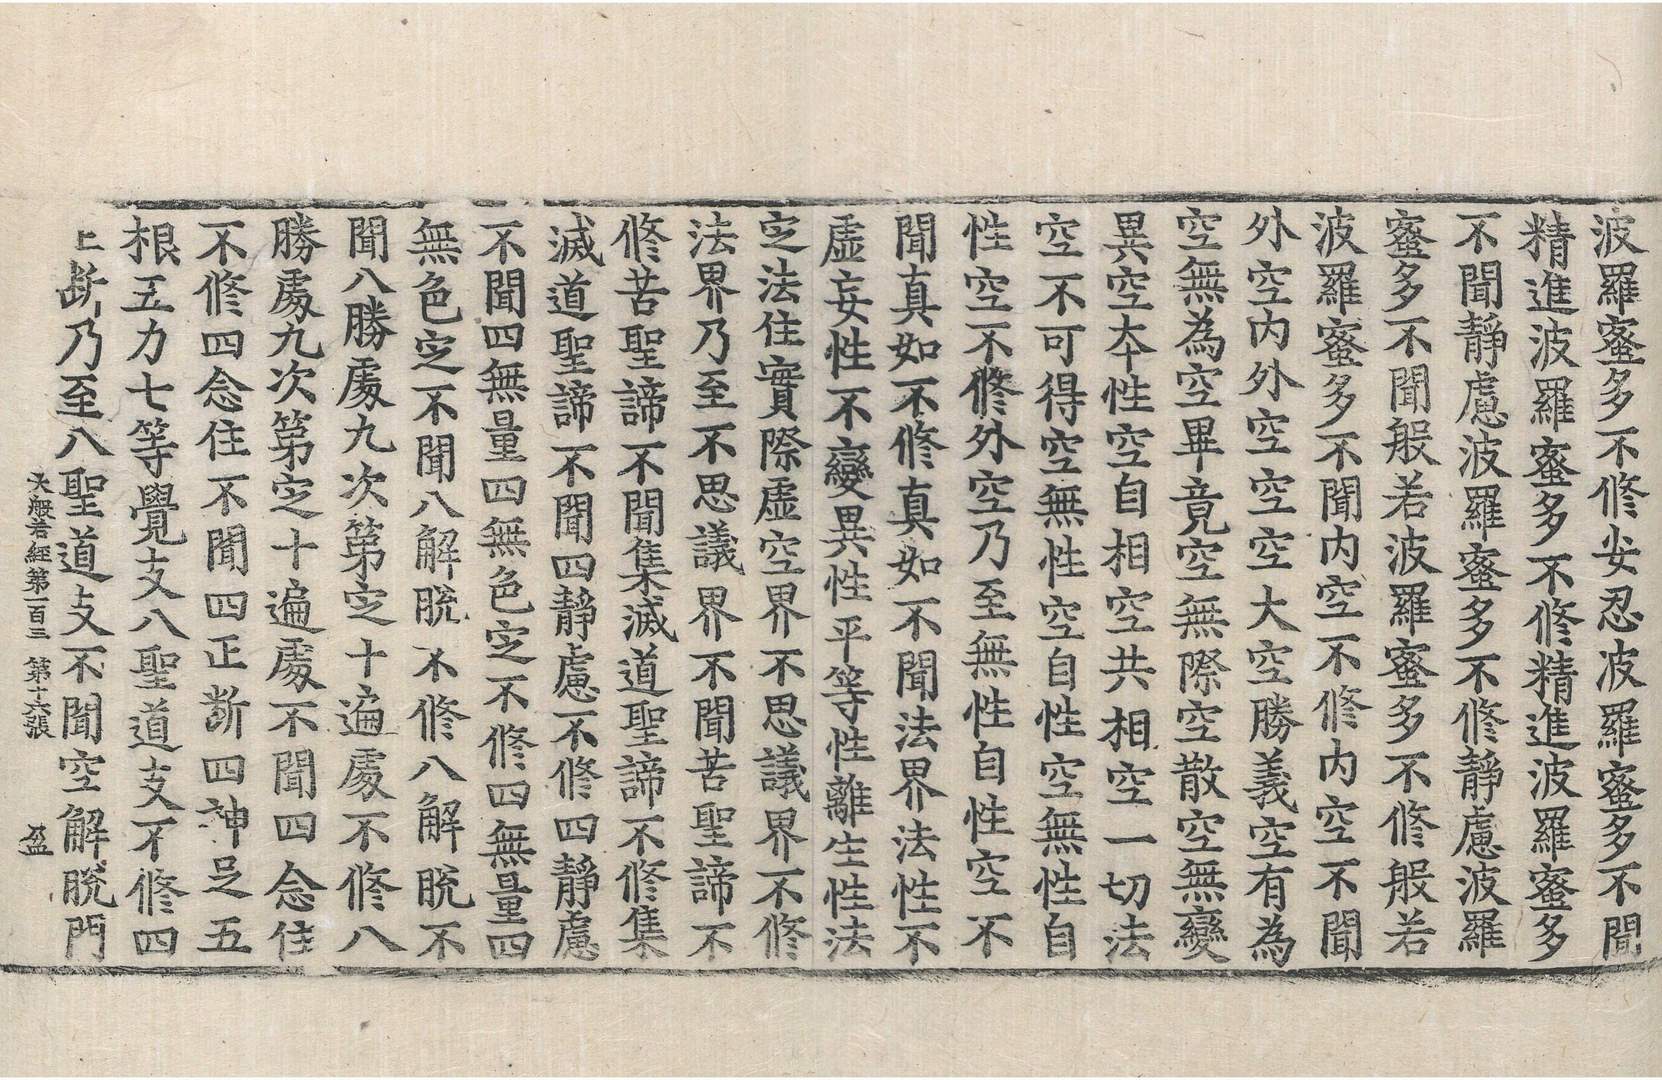 波羅蜜多不修安忍波羅蜜多不聞
精進波羅蜜多不修精進波羅蜜多
不聞靜慮波羅蜜多不修靜慮波羅
蜜多不聞般若波羅蜜多不修般若
波羅蜜多不聞内空不修内空不聞
外空内外空空空大空勝義空有為
空無為空畢竟空無際空散空無變
異空本性空自相空共相空一切法
空不可得空無性空自性空無性自
性空不修外空乃至無性自性空不
聞真如不修真如不聞法界法性不
虛妄性不變異性平等性離生性法
定法住實際虛空界不思議界不修
法界乃至不思議界不聞苦聖諦不
修苦聖諦不聞集滅道聖諦不修集
滅道聖諦不聞四靜慮不修四靜慮
不聞四無量四無色定不修四無量四
無色定不聞八解脱不修八解脱不
聞八勝處九次第定十遍處不修八
勝處九次第定十遍處不聞四念住
不修四念住不聞四正斷四神足五
根五力七等覺支八聖道支不修四
正斷乃至八聖道支不聞空解脱門
大般若經第一百三 第十六張 盈